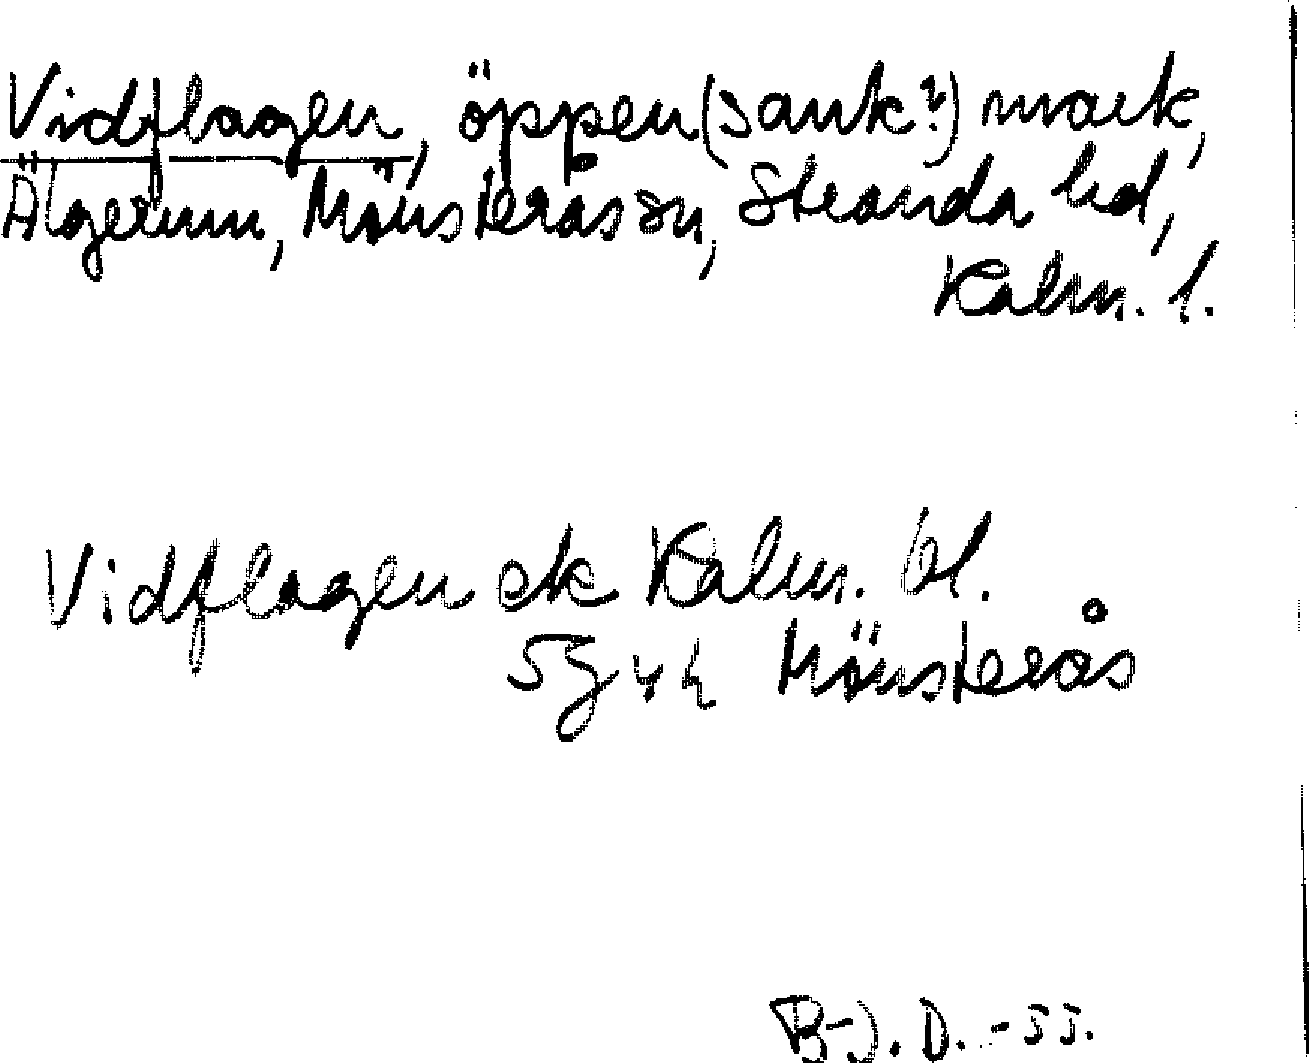 Vidflagen, öppen (sank?) mark,
Älgerum, Mönsterås sn, Stranda hd,
Kalm. l.
Vidflagen ek Kalm. bl.
5g4h Mönsterås
B-J. D. -55.